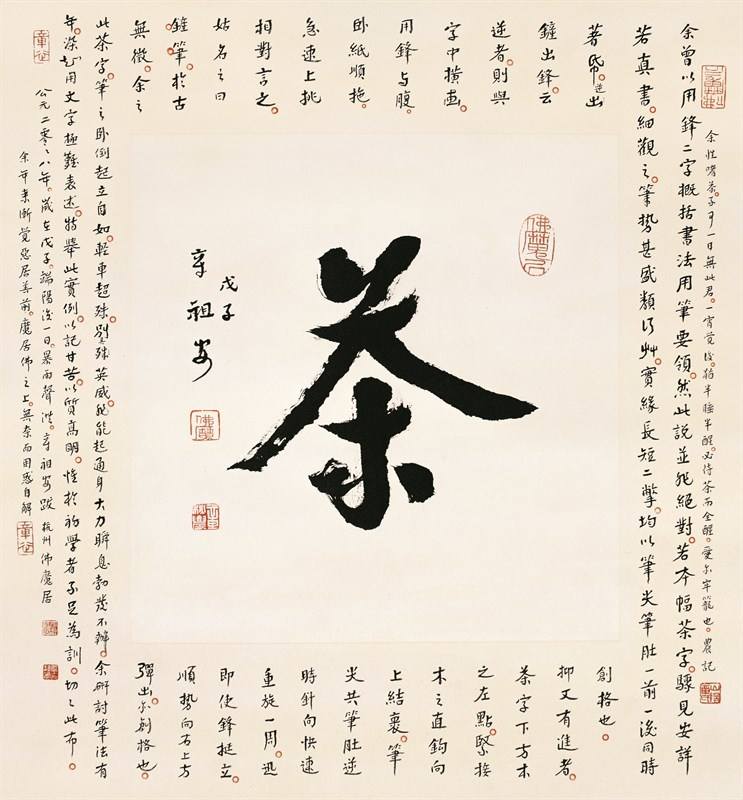 余曾以用鋒二字概括書法用筆要領。然此說並非絕對。若本幅茶字。驟見安詳
若真書。細觀之。筆勢甚盛類行艸。實緣長短二撇。均以筆尖筆肚一前一後同時
著帋。逆出
鏟出鋒。云
逆者。則與
字中横畫。
用鋒與腹
卧紙順拖。
急速上挑
相對言之。
姑名之曰
鏟筆。於古
無徵。余之
創格也。
抑又有進者。
茶字下方木
之左點。緊接
木之直鈎向
上結裹。筆
尖共筆肚逆
時針向快速
重旋一周。迅
即使鋒挺立。
順勢向右上方
彈出。亦創格也。
此茶字筆之卧倒起立自如。輕車超殊。別殊英威。非能起通身大力瞬息勃發不辦。余研討筆法有
年。深知用文字極難表述。特舉此實例。以記甘苦。以質高明。惟於初學者不足為訓。切切此布。
公元二零零八年。歲在戊子。端陽後一日。暴雨聲 章祖安跋 杭州佛魔居
余年來漸覺惡居善前。魔居佛之上。無奈而困惑自解
章祖
余性嗜茶。不可一日無此君。一宵覺後。猶半睡半醒。必待茶而全醒。受爾牢籠也。農記
佛魔居
茶
戊子
章祖安
佛魔